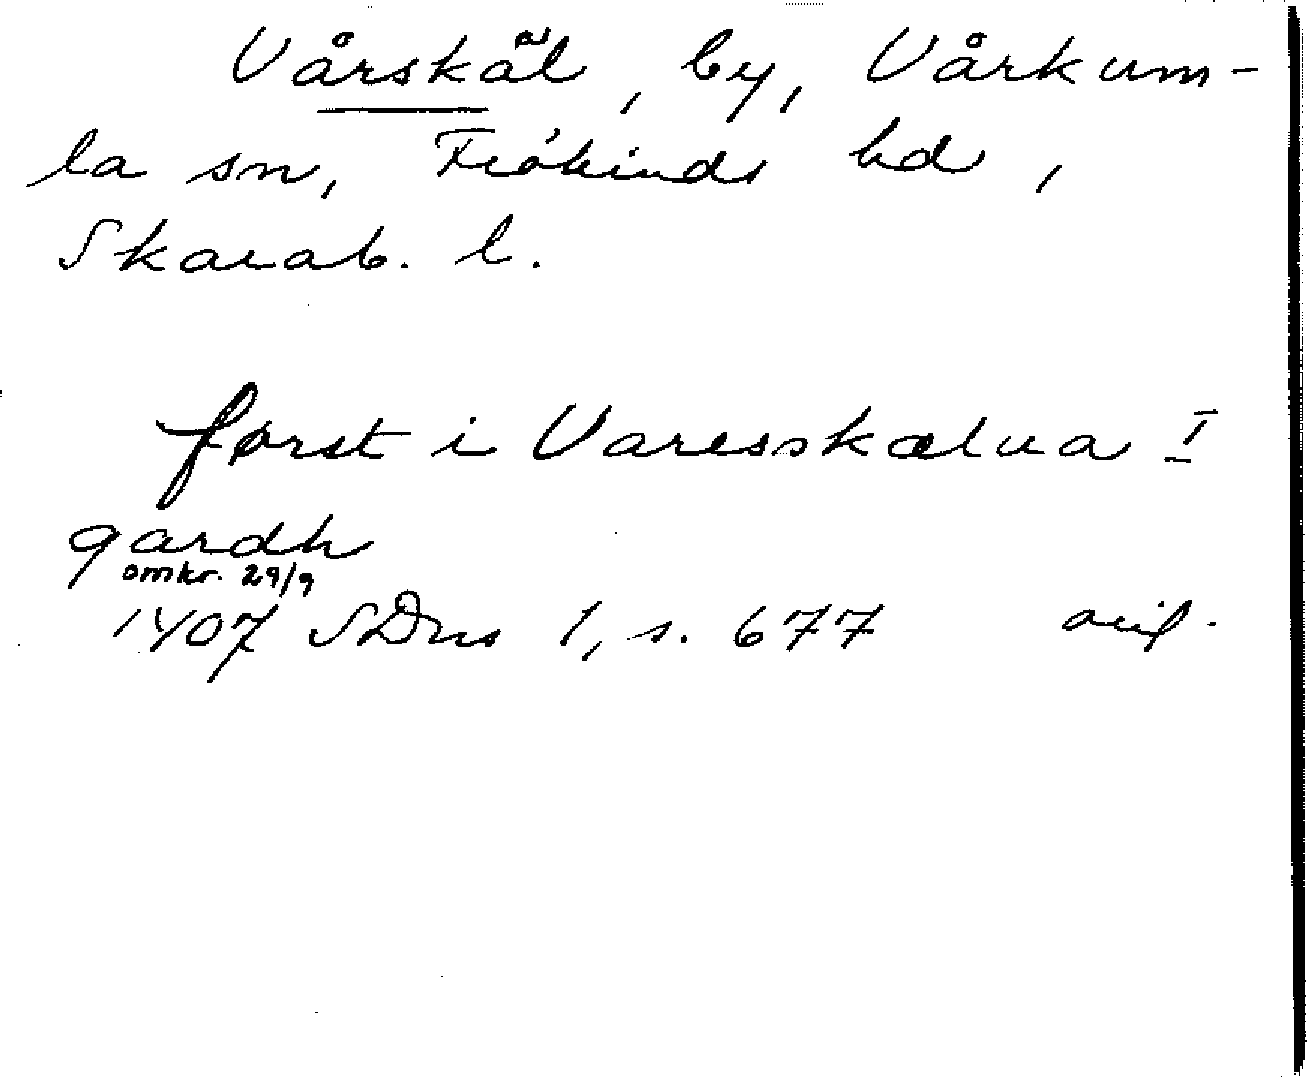 Vårskäl, by, Vårkum-
la sn, Frökinds hd,
Skarab. l.
først i Varesskælua I
gardh
omkr. 29/9
1407 SDns 1, s. 677 avf.